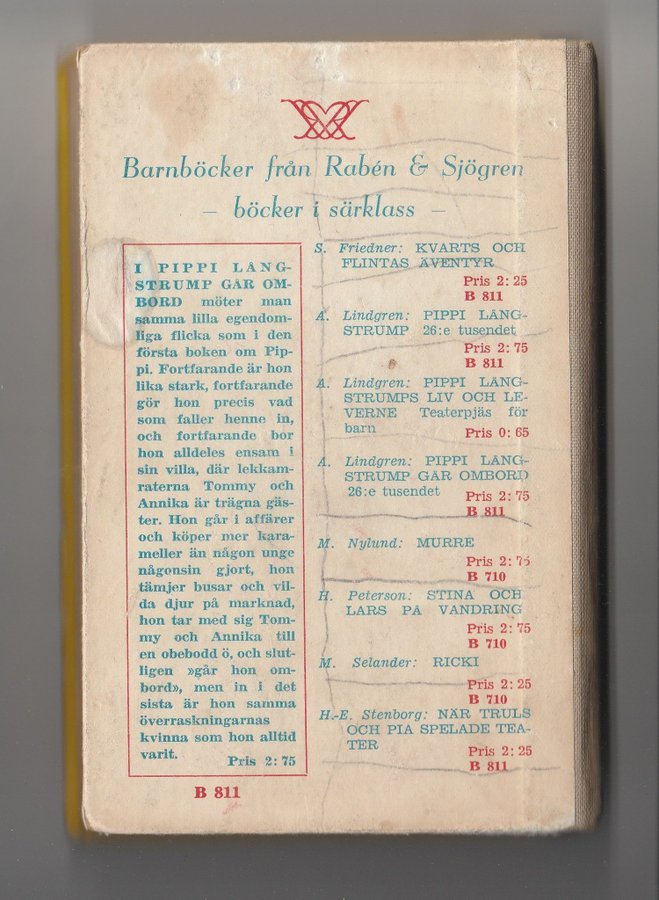 Barnböcker från Rabén & Sjögren
— böcker i särklass —
I PIPPI LÅNG-
STRUMP GÅR OM-
BORD möter man
samma lilla egendom-
liga flicka som i den
första boken om Pip-
pi. Fortfarande är hon
lika stark, fortfarande
gör hon precis vad
som faller henne in,
och fortfarande bor
hon alldeles ensam i
sin villa, där lekkam-
raterna Tommy och
Annika är trägna gäs-
ter. Hon går i affärer
och köper mer kara-
meller än någon unge
någonsin gjort, hon
tämjer busar och vil-
da djur på marknad,
hon tar med sig Tom-
my och Annika till
en obebodd ö, och slut-
ligen »går hon om-
bord», men in i det
sista är hon samma
överraskningarnas
kvinna som hon alltid
varit.
Pris 2: 75
B 811
S. Friedner: KVARTS OCH
FLINTAS ÄVENTYR
Pris 2: 25
B 811
A. Lindgren: PIPPI LÅNG-
STRUMP 26:e tusendet
Pris 2: 75
B 811
A. Lindgren: PIPPI LÅNG-
STRUMPS LIV OCH LE-
VERNE Teaterpjäs för
barn
Pris 0: 65
A. Lindgren: PIPPI LÅNG-
STRUMP GÅR OMBORD
26:e tusendet
Pris 2: 75
B 811
M. Nylund: MURRE
Pris 2: 75
B 710
H. Peterson: STINA OCH
LARS PÅ VANDRING
Pris 2: 75
B 710
M. Selander: RICKI
Pris 2: 25
B 710
H.-E. Stenborg: NÄR TRULS
OCH PIA SPELADE TEA-
TER
Pris 2: 25
B 811